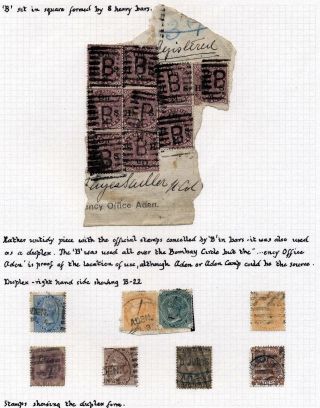 'B' set in square formed by 8 heavy bars.
Registered
B
Hayes Sadler Lt Col
ency Office Aden.
Rather untidy piece with the official stamps cancelled by 'B' in bars - it was also used
as a duplex. The 'B' was used all over the Bombay Circle but the "...ency Office
Aden" is proof of the location of use, although Aden or Aden Camp could be the source.
Duplex - right hand side showing B-22
ADEN
Stamps showing the duplex